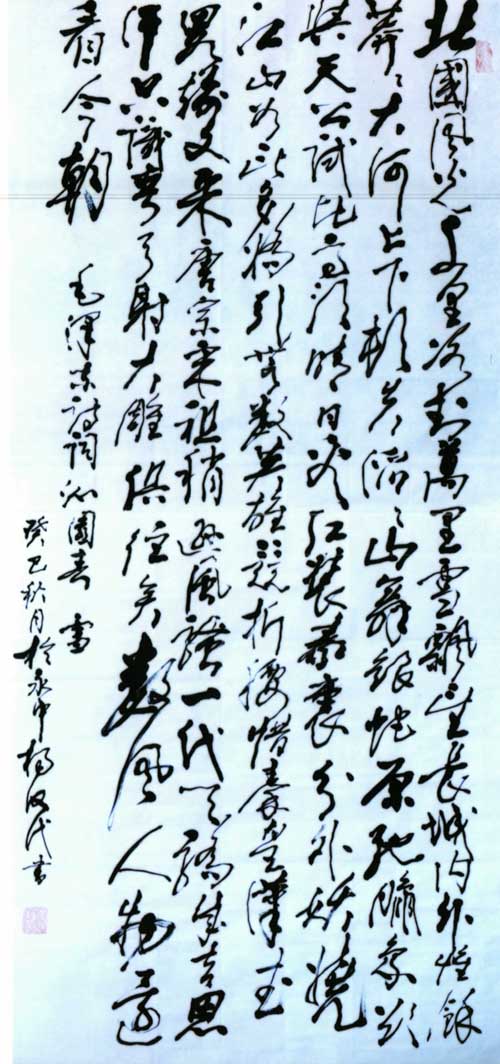 北國風光千里冰封萬里雪飄望長城内外惟餘
莽々大河上下頓失滔々山舞銀蛇原馳蠟象欲
與天公試比高須晴日看紅裝素裹分外妖嬈
江山如此多嬌引無數英雄競折腰惜秦皇漢武
畧輸文采唐宗宋祖稍遜風騷一代天驕成吉思
汗只識彎弓射大雕俱往矣數風人物還
看今朝 毛澤東詩詞沁園春雪
癸巳秋月於永中楊代書